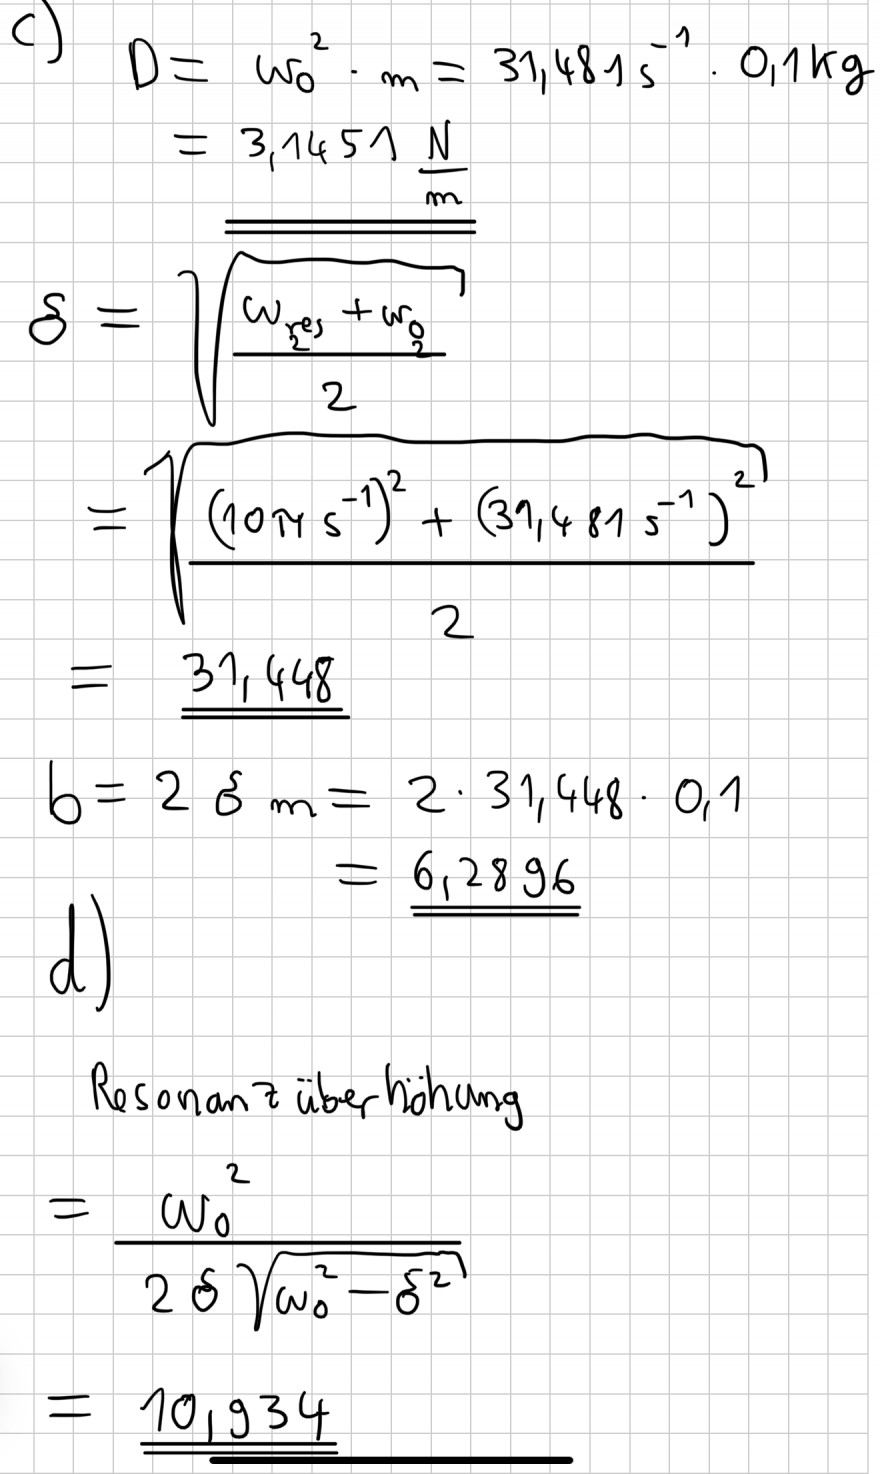 c)
D = ω₀² · m = 31,481 s⁻¹ · 0,1 kg
= 3,1451 N/m
δ = √((ω_res² + ω₀²)/2)
= √(((10π s⁻¹)² + (31,481 s⁻¹)²)/2)
= 31,448
b = 2 δ m = 2 · 31,448 · 0,1
= 6,2896
d)
Resonanzüberhöhung
= ω₀²/(2δ√(ω₀² − δ²))
= 10,934